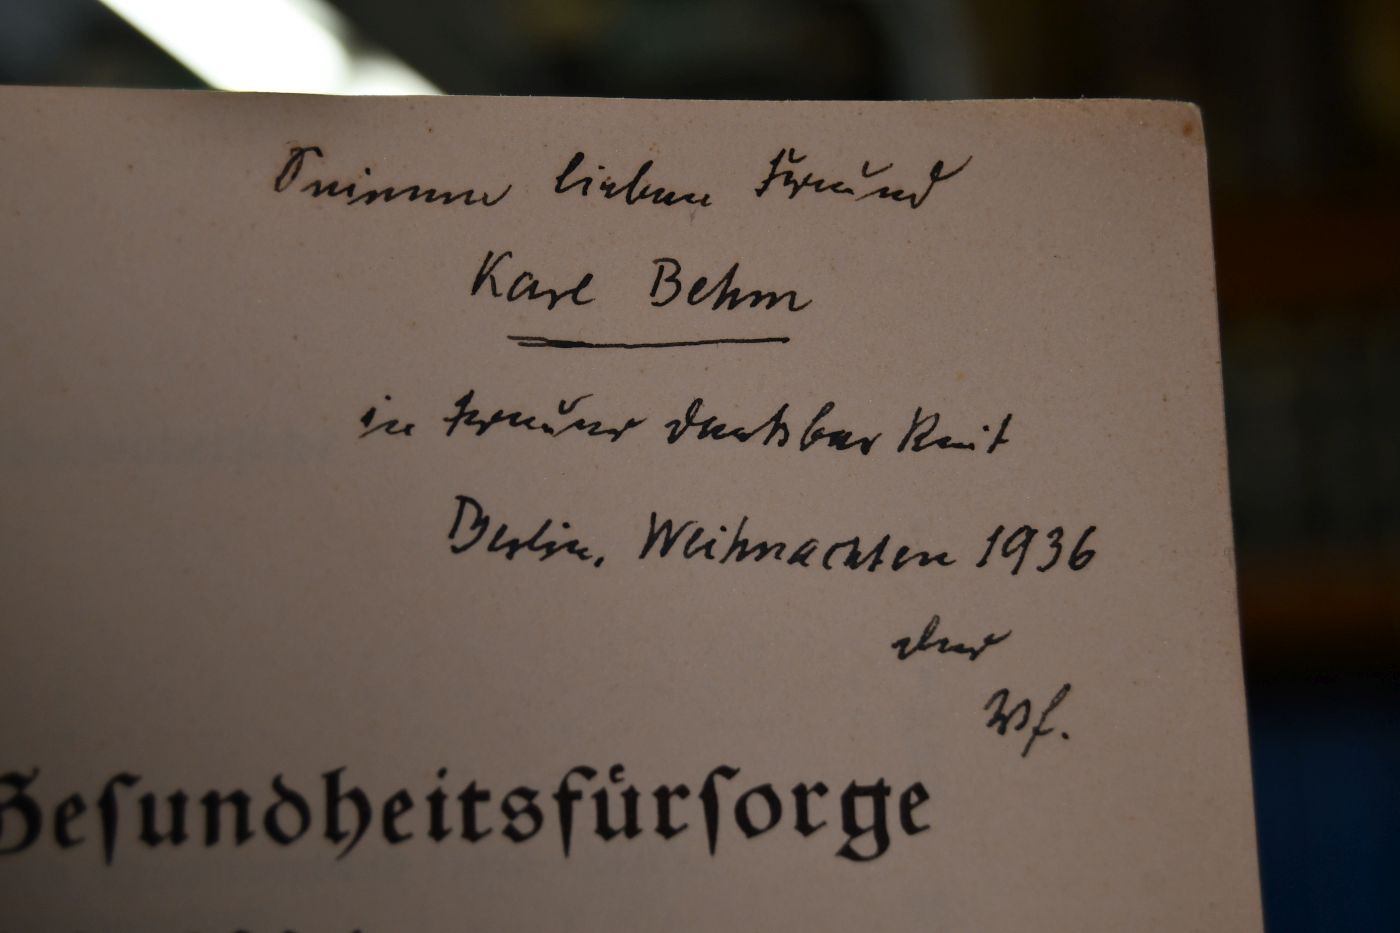 Seinem lieben Freund
Karl Behm
in treuer Dankbarkeit
Berlin, Weihnachten 1936
der
Vf.
Gesundheitsfürsorge